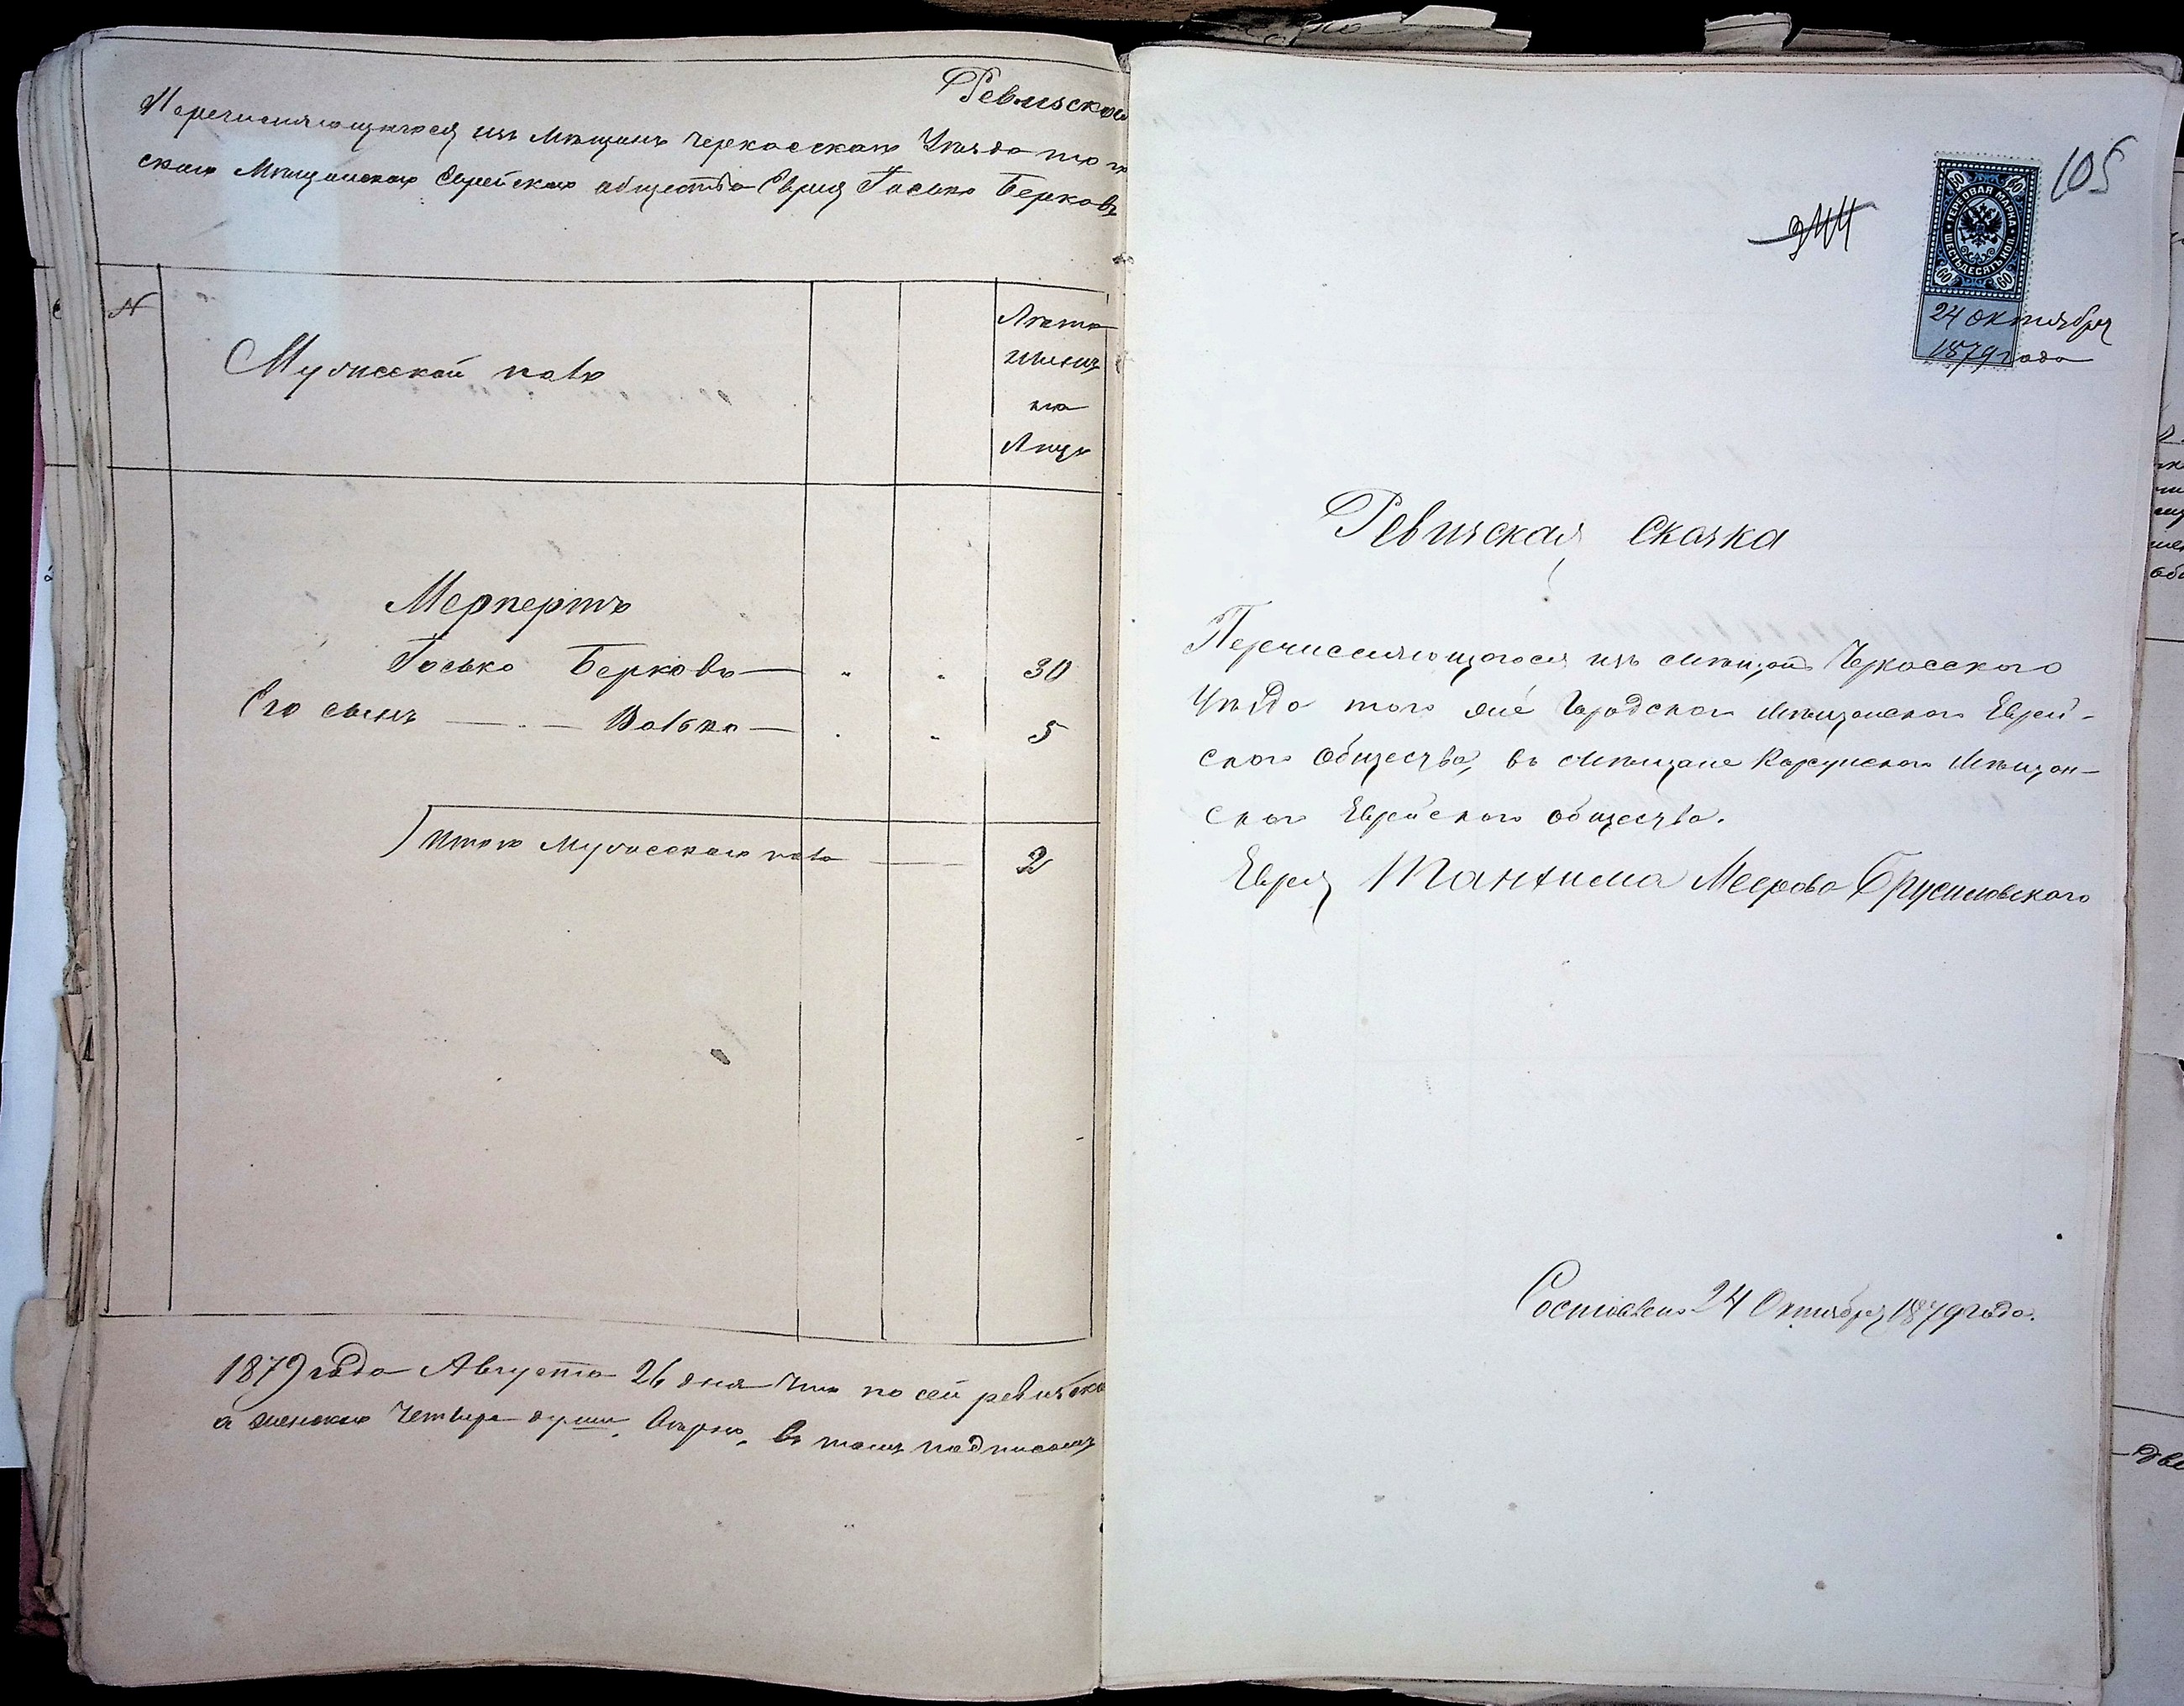 Ревизская
Перечисляющагося изъ Мѣщанъ Черкасскаго Уѣзда того
скаго Мѣщанскаго Еврейскаго общества Еврея Госько Берковъ
N
Мужескій полъ
Лѣта
нынѣ
на
лицо
Мерпертъ
Госько Берковъ — " " 30
Его сынъ — Волько — " " 5
Итого Мужескаго пола — 2
1879 года Августа 26 дня Что по сей ревизско
а женска четыре души, вѣрно, въ томъ подписомъ
105
344
ГЕРБОВАЯ МАРКА
ШЕСТЬДЕСЯТЪ КОП.
60 60
60 60
24 октября
1879 года
Ревизская Сказка
Перечисляющагося изъ мѣщанъ Черкасскаго
Уѣзда того же Городскаго Мѣщанскаго Еврей-
скаго общества, въ мѣщане Корсунскаго Мѣщан-
скаго Еврейскаго общества.
Еврея Танхима Меерова Брусиловскаго
Составлена 24 Октября 1879 года.